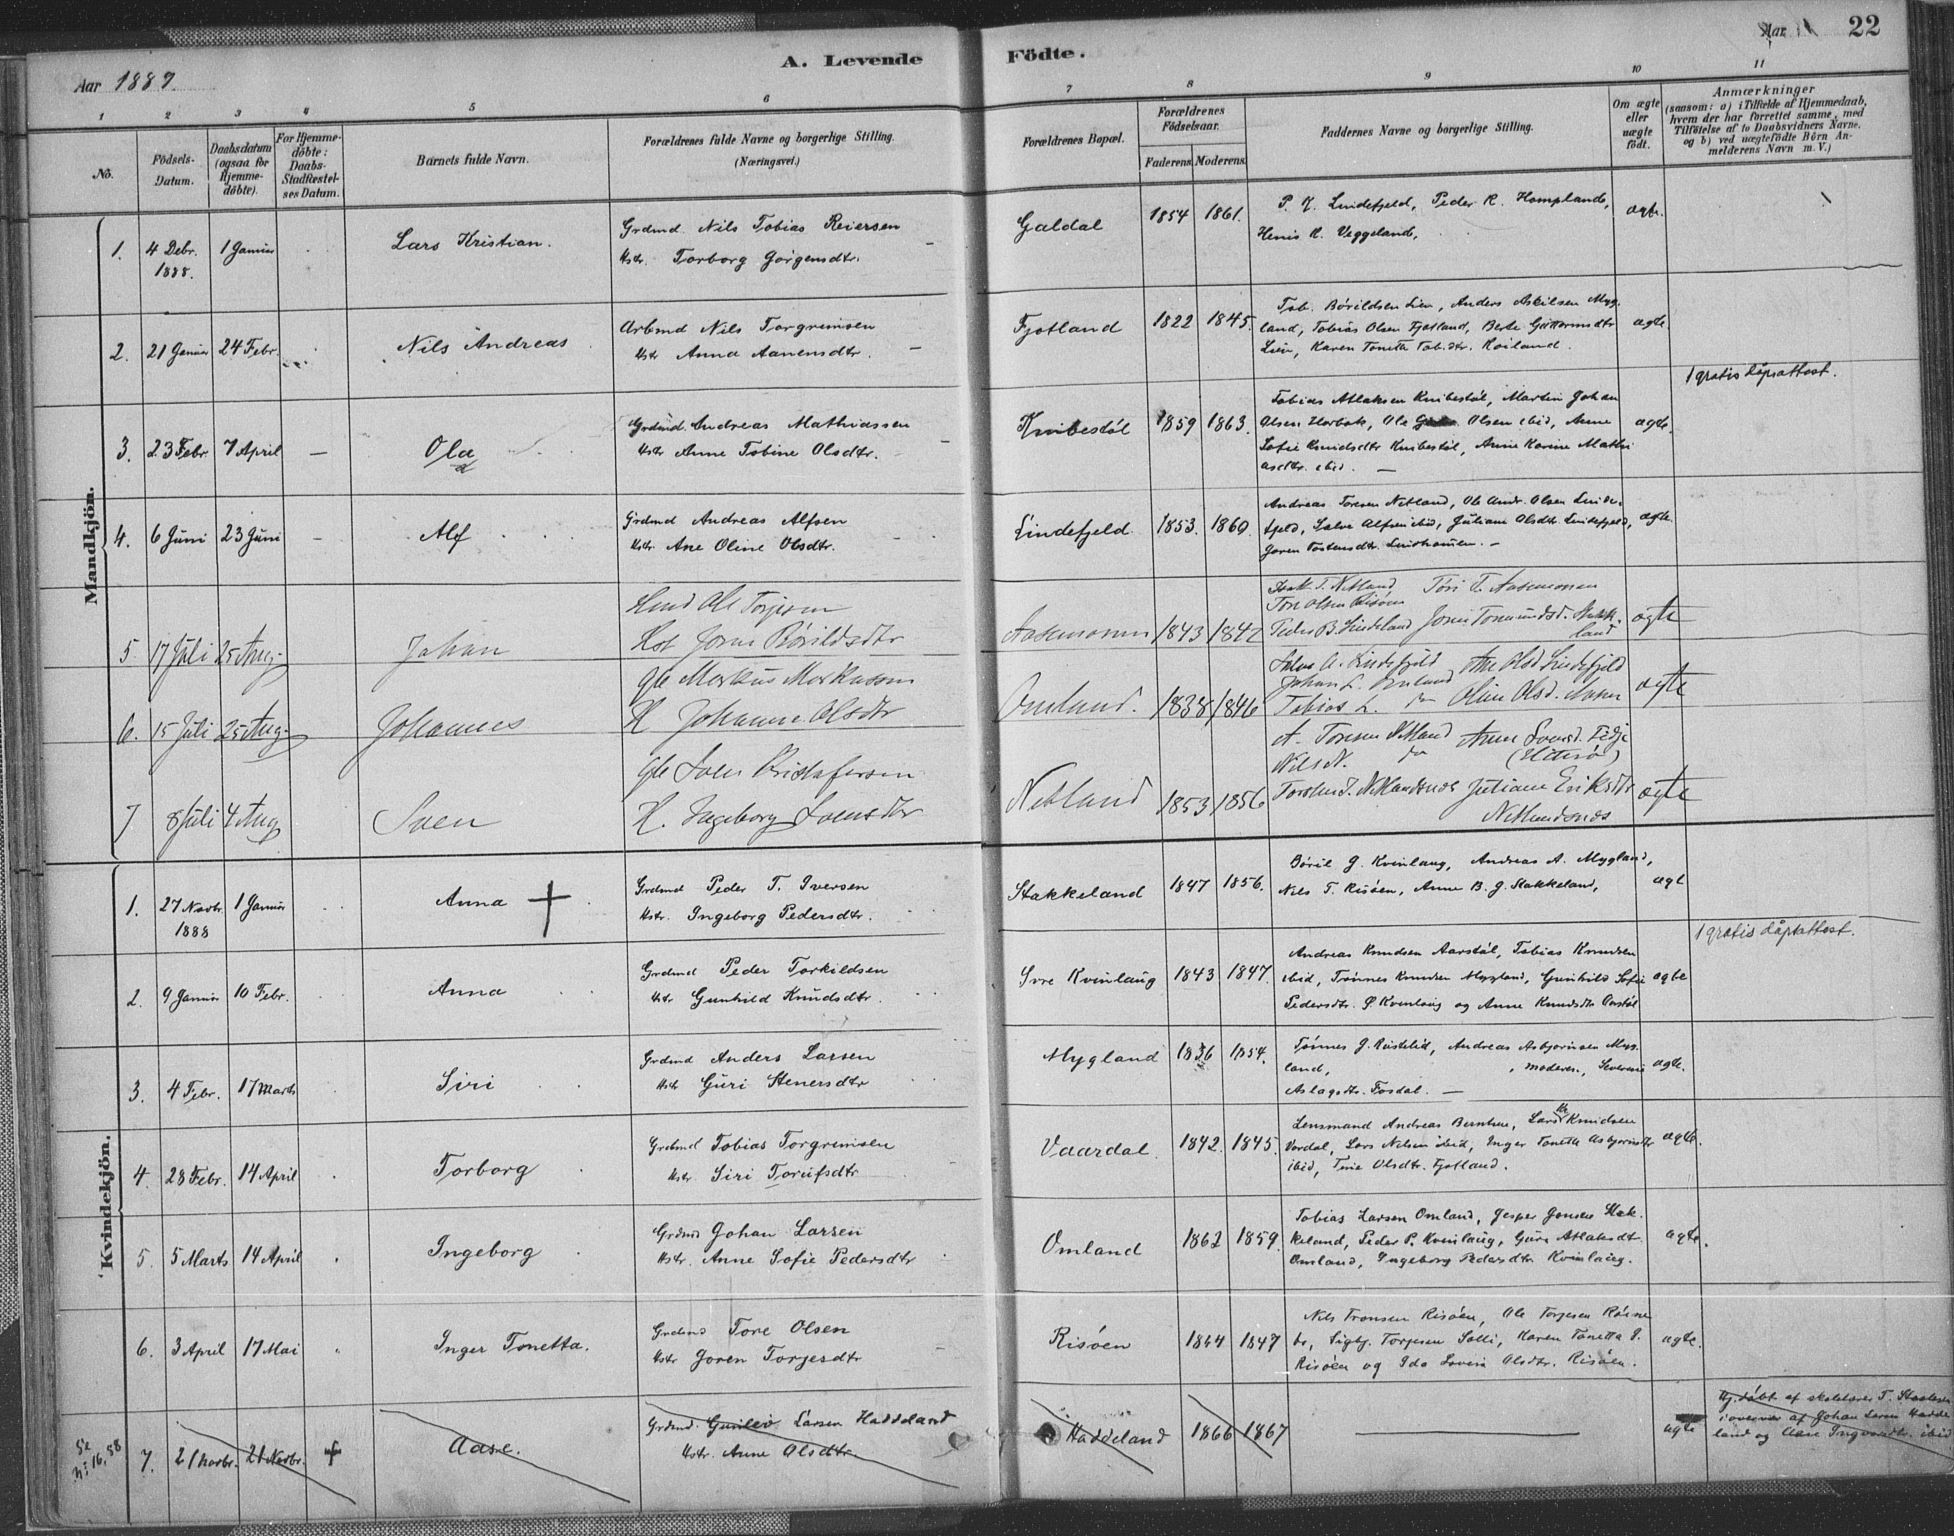 Aar 1889.
A. Levende
Födte.
Aar
22
1 2 3 4 5 6
7 8 9 10 11
No.
Födsels-Datum.
Daabsdatum (ogsaa for Hjemme-döbte).
For Hjemme-döbte: Daabs-Stadfæstel-ses Datum.
Barnets fulde Navn.
Forældrenes fulde Navne og borgerlige Stilling.
(Næringsvei.)
Forældrenes Bopæl.
Forældrenes Födselsaar.
Faderens. Moderens.
Faddernes Navne og borgerlige Stilling.
Om ægte eller uægte födt.
Anmærkninger
(saasom: a) i Tilfælde af Hjemmedaab,
hvem der har forrettet samme, med
Tilföielse af to Daabsvidners Navne.
og b) ved uægtefödte Börn An-
melderens Navn m. V.)
Mandkjön.
1. 4 Debr. 1888. 1 Januar Lars Kristian.
Grdmd Nils Tobias Reiersen
Hstr. Torborg Görgensdtr.
Galdal 1854 1861.
P. K. Lindefjeld, Peder R. Hompland,
Henis K. Veggeland,
ægte.
2. 21 Januar 24 Febr. Nils Andreas
Arbmd Nils Torgrimsen
Hstr Anna Aanensdtr.
Fjotland 1822 1845.
Tob. Börildsen Lien, Anders Askilsen Myg-
land, Tobias Olsen Fjotland, Berte Guttormsdtr
Lien, Karen Tonetta Tob.dtr. Röiland.
ægte
1 gratis dåpsattest.
3. 23 Febr. 7 April — Ola
Grdmd Andreas Mathiassen
Hstr Anne Tobine Olsdtr.
Knibestöl 1859 1863.
Tobias Atlaksen Knibestöl, Martin Johan
Olsen Horbak, Ole Olsen ibid, Anne
Sofie Knudsdtr Knibestöl, Anne Karine Mathi
asdtr. ibid. —
ægte.
4. 6 Juni 23 Juni — Alf
Grdmd Andreas Alfsen
Hstr. Ane Oline Olsdtr.
Lindefjeld 1853. 1860.
Andreas Toresen Netland, Ole Andr. Olsen Linde-
fjeld, Salve Alfsen ibid, Juliane Olsdtr. Lindefjeld,
Joren Tostensdtr. —
ægte.
5. 17 Juli 25 Aug. Johan
Ole Torjesen
Hst Joren Börildsdtr
Aasemoen 1843 1842
T. Netland Töri T. Aasemoen
Tore Olsen Risöen
Peder B. Lindeland Joren Tormundsd. Stakk-
land
ægte
6. 15 Juli 25 Aug. Johannes
Gbr Markus Markussen
H Johanne Olsdtr
Omland. 1838 1846
Salve A. Lindefjeld Ane Olsd Lindefjeld
Johan L. Omland
Tobias L. do Oline Olsd.
ægte
7 8 Juli 4 Aug Sven
Gbr Sven Kristofersen
H. Ingeborg Svensdtr
Netland 1853 1856
A. Toresen Netland Anne Svensd. Fidje
Nils N. do (Hitterø)
Torsten T. Netlandsnes Juliane Eriksdtr
Netlandsnes
ægte
Kvindekjön.
1. 27 Novbr. 1888 1 Januar Anna
Grdmd Peder T. Iversen
Hstr. Ingeborg Pedersdtr.
Stakkeland 1847 1856.
Böril G. Kvinlaug, Andreas A. Mygland,
Nils T. Risöen, Anne B. G. Stakkeland,
ægt
1 gratis dåpsattest.
2. 9 Januar 10 Febr. Anna
Grdmd Peder Torkildsen
Hstr Gunhild Knudsdtr.
Övre Kvinlaug 1843 1847.
Andreas Knudsen Aarstöl, Tobias Knudsen
ibid, Tönnes Knudsen Mygland, Gunhild Sofie
Pedersdtr. Ö Kvinlaug og Anne Knudsdtr Aarstöl
ægte
3. 4 Febr. 17 Marts Siri
Grdmd Anders Larsen
Hstr Guri Stenersdtr
Mygland 1836 1854.
Tönnes G. Röstelid, Andreas Asbjörnsen Myg-
land, , moderen, Severine
Aslagsdtr. Fosdal. —
ægte.
4. 28 Febr. 14 April Torborg
Grdmd Tobias Torgrimsen
Hstr Siri Torufsdtr
Vaardal. 1842. 1845.
Lensmand Andreas Berntsen, Lars Knudsen
Vordal, Lars Nilsen ibid, Inger Tonetta Asbjörnsdtr
ibid, Trine Olsdtr. Fjotland.
ægte.
5. 5 Marts 14 April Ingeborg
Grdmd Johan Larsen
Hstr. Anne Sofie Pedersdtr
Omland 1862 1859.
Tobias Larsen Omland, Jesper Jensen Stak-
keland, Peder P. Kvinlaug, Guri Atlaksdtr.
Omland, Ingeborg Pedersdtr Kvinlaug.
ægte.
6. 3 April 17 Mai Inger Tonetta.
Grdmd Tore Olsen
Hstr Joren Torjesdtr
Risöen 1844 1847
Nils Tronsen Risöen, Ole Torjesen
Sigbj. Torjesen Solli, Karen Tonetta T.
Risöen og Ida Lovise Olsdtr. Risöen.
ægte.
Se No 16, 88 7. 21 Novbr. 21 Novbr. Aase.
Grdmd. Gunlev Larsen Haddeland
Hstr. Anne Olsdtr.
Haddeland 1866 1867
ægte
Hj.döbt af skolelærer T.
i overvær af Johan Larsen Hadde
land og Aase Ingvaldsdtr. ibid